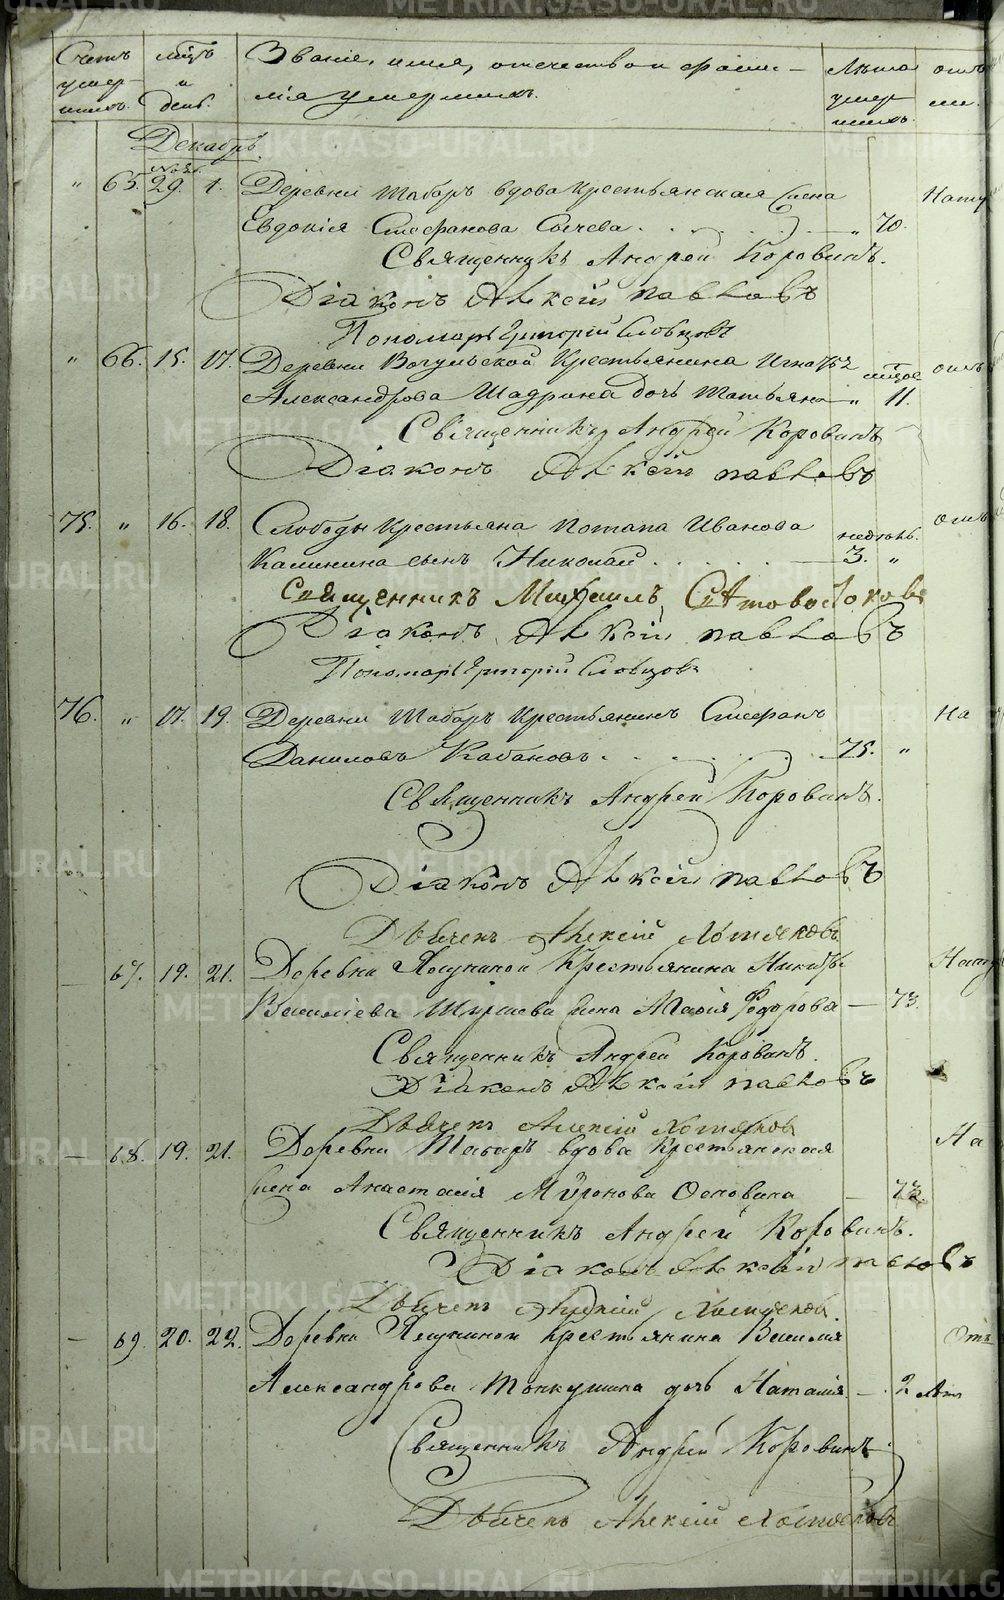 METRIKI.GASO-URAL.RU
Счетъ умер- шихъ.
мцъ и день.
Званіе, имя, отечество и фами-
лія умершихъ.
Лѣта умер шихъ.
отъ
Декабрь.
" 65. Нояб. 29. 1. Деревни Табаръ вдова крестьянская жена
Евдокія Стефанова Сычева . . . . " 70.
Священникъ Андрей Коровинъ.
Діаконъ Алексій Павловъ
Пономарь Григорій Словцовъ
" 66. 15. 17. Деревни Вогульской крестьянина Игнатья
Александрова Шадрина дочь Татьяна " 11.
Священникъ Андрей Коровинъ
Діаконъ Алексій Павловъ
75. " 16. 18. Слободы крестьяна Потапа Иванова недѣль.
Калинина сынъ Николай . . . . . 3. "
Священникъ Михаилъ
Діаконъ Алексій Павловъ
Пономарь Григорій Словцовъ
76. " 17. 19. Деревни Табаръ крестьянинъ Стефанъ На
Даниловъ Кабановъ . . . . . 75. "
Священникъ Андрей Коровинъ.
Діаконъ Алексій Павловъ
Дьячекъ Алексій Хотяновъ
— 67. 19. 21. Деревни крестьянина Никиты
Васильева жена Марія Федорова — 73.
Священникъ Андрей Коровинъ.
Діаконъ Алексій Павловъ
Дьячекъ Алексій
— 68. 19. 21. Деревни Табаръ вдова крестьянская На
жена Анастасія Миронова Осповина —
Священникъ Андрей Коровинъ.
Діаконъ Алексій Павловъ
Дьячекъ Алексій
— 69. 20. 22. Деревни крестьянина Василія Отъ
Александрова Тонкушина дочь Наталія — 2 лѣт
Священникъ Андрей Коровинъ.
Дьячекъ Алексій